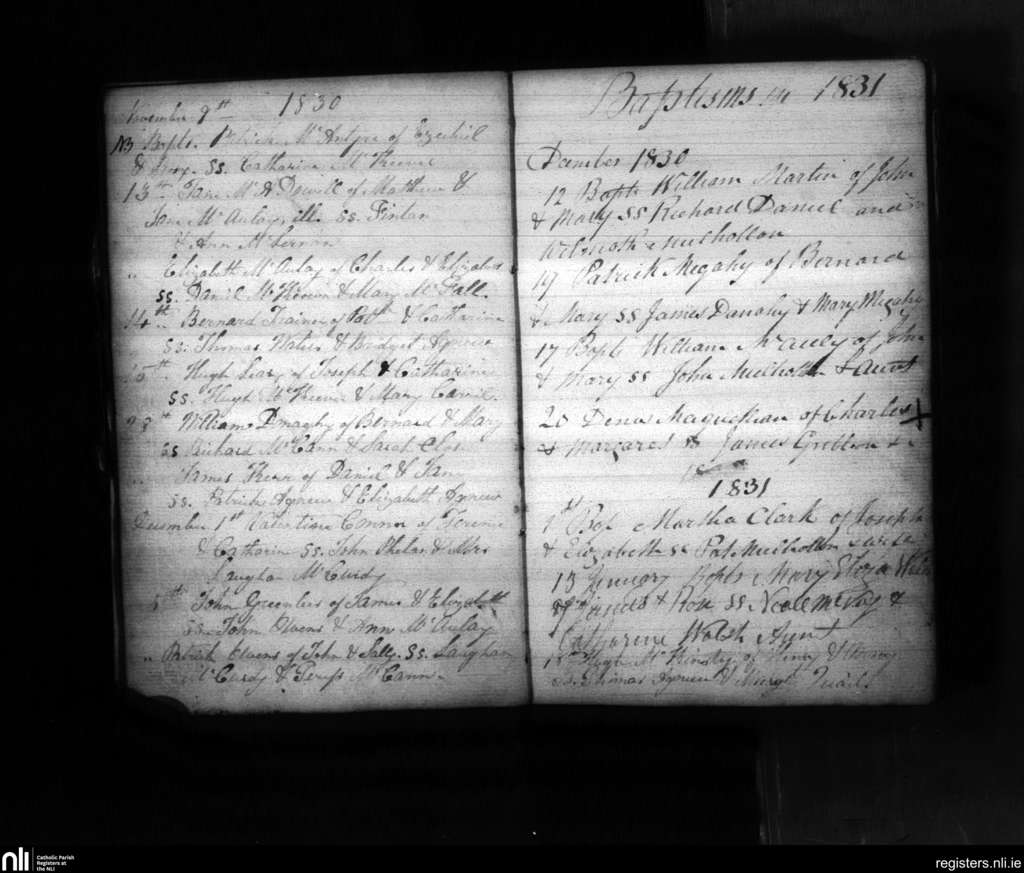 November 9th 1830
Bapts. Patrick McAntyre of Ezechiel
& ss. Catharine McKeever
13th Jane McDowell of Matthew &
Jane McAulay, ill. ss. Fintan
& Ann McLernon
" Elizabeth McAulay of Charles & Elizabeth
ss. Daniel & Mary McFall.
14th Bernard Trainer of Patk & Catharine
ss. Thomas Waters & Bridget Agnew
Hugh Leary of Joseph & Catharine
ss. Hugh McKeever & Mary Carvil.
28th William Dnaghy of Bernard & Mary
ss Richard McCann & Sarah
James of Daniel & Jane
ss. Patrick Agnew & Elizabeth Agnew
December 1st Connor of Terence
& Catharin ss. John Phelan & Mrs
Laughn McCurdy
5th John Greenlees of James & Elizabeth
ss. John Owens & Ann McAulay
" Patrick Owens of John & Sally. Ss. Laughan
McCurdy & McCann.
Baptisms in 1831
Dember 1830
12 Bapts William Martin of John
& Mary SS Richard Daniel and
Mulhollan
19 Patrick Megahy of Bernard
& Mary SS James Danahy & Mary Megahy
17 Bapts William McAuley of John
& Mary SS John Mulholln & Aunt
20 Maguckian of Charles
& Margaret SS James Gribben &
1831
1st Bap Martha Clark of Joseph
& Elizabeth ss Pat Mulhollan & wife
15 Jenuary Bapts Mary Eliza
& Rose SS McVay &
Catharine Walsh Aunt
Hugh McKinstry of Henry & Nancy
ss. Thomas Agnew & Margt Quail.
NLI
Catholic Parish
Registers at
the NLI
registers.nli.ie